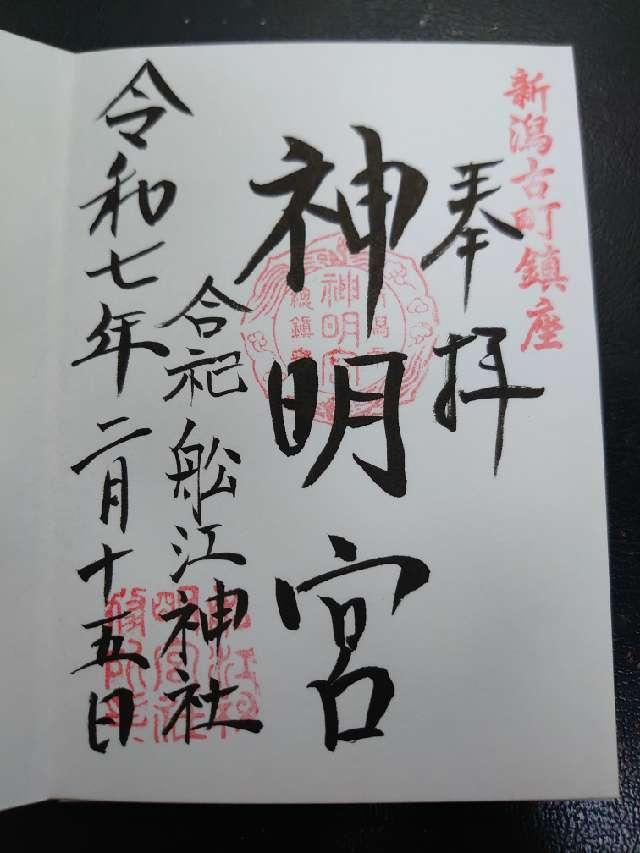 新潟古町鎮座
奉拝
神明宮
合祀 舩江神社
令和七年二月十五日
神明宮